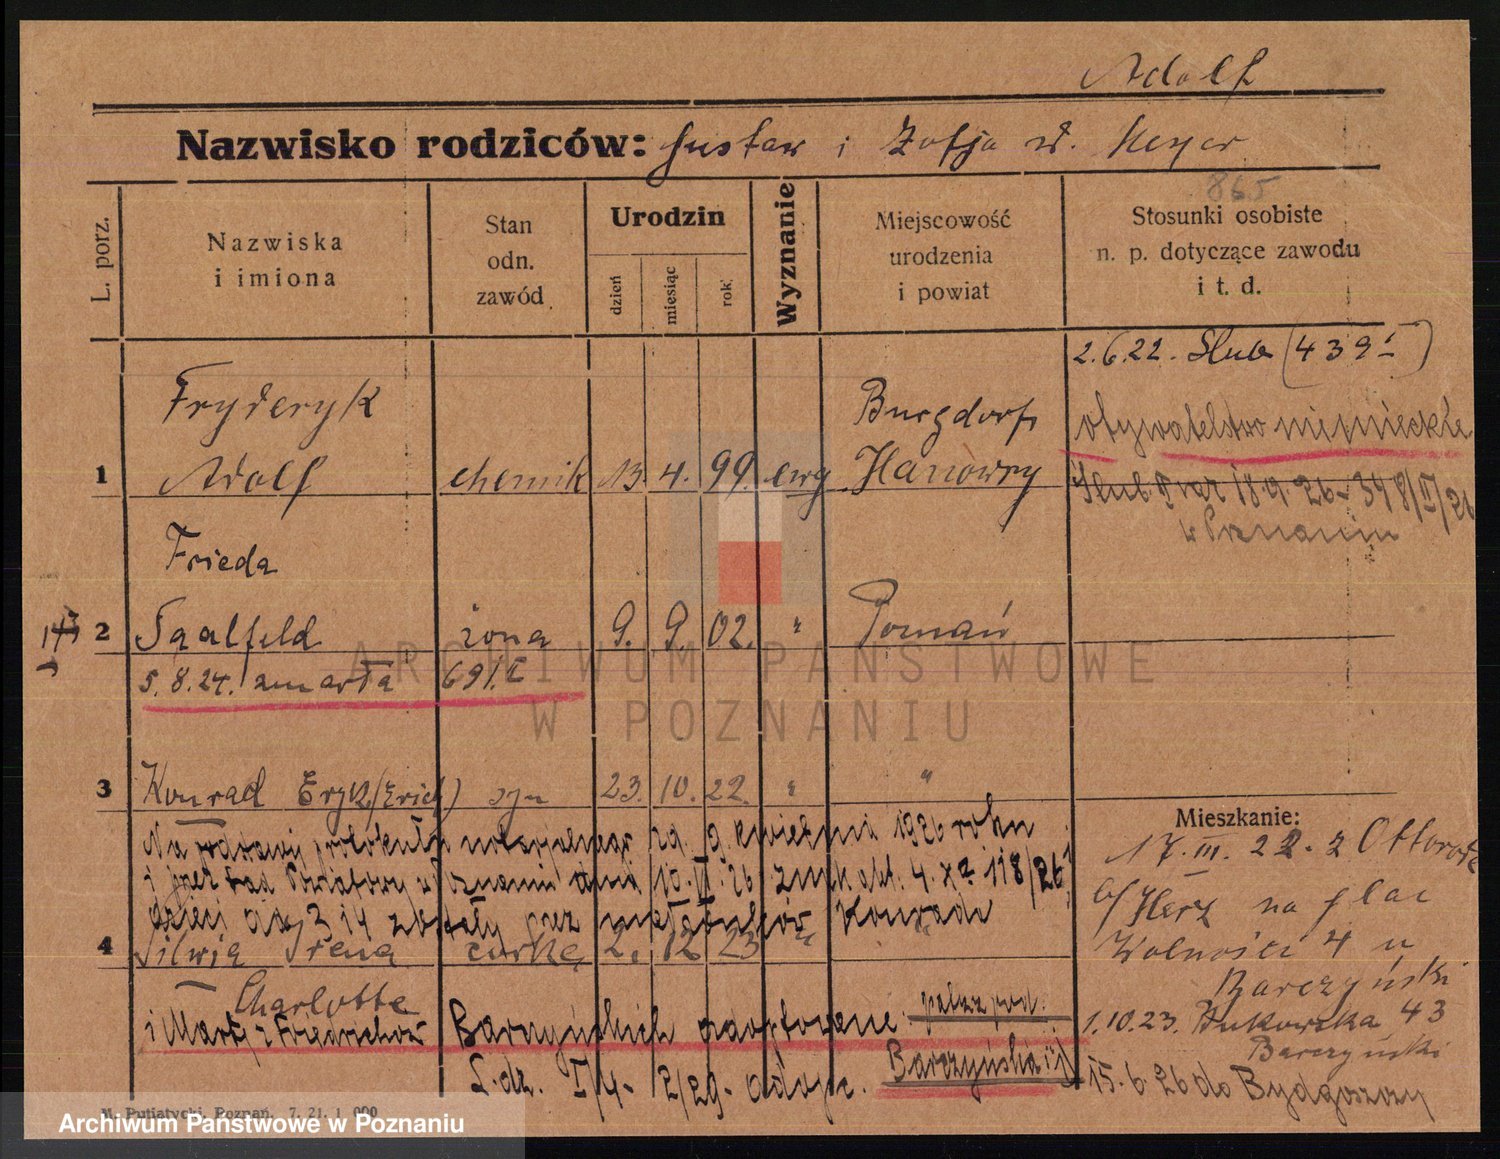 Adolf
Nazwisko rodziców: Gustaw i Zofja d. Meyer
865
L. porz.
Nazwiska i imiona
Stan odn. zawód
Urodzin
dzień
miesiąc
rok
Wyznanie
Miejscowość urodzenia i powiat
Stosunki osobiste n. p. dotyczące zawodu i t. d.
2.6.22. Slub (439 I)
Fryderyk
Burgdorf
obywatelstwo niemieckie
1 Adolf chemik 13 4. 99. ewg Hanowry
Slub 18.9.26 - 348/II/26
w Poznaniu
Frieda
2 Saalfeld żona 9. 9. 02. " Poznań
5.8.24. zmarła 691.I
3 Konrad Eryk (Erich) syn 23. 10. 22. " "
Mieszkanie:
Na podstawie protokułu notarjalnego zd. 9 kwietnia 1926 roku
17. III. 22. z
i przez Sąd Powiatowy w Poznaniu dnia 10. VI. 26. znak akt. 4. X. 118/26
b/ Herz na plac
dzieci ad 3 i 4 zostały przez małżonków Konrada
Wolności 4 u
4 Silwia Irena córka 2. 12 23 " "
Barczyński
Charlotte
i Marty z Friedrichów Barczyńskich adoptowane.
1.10.23. Bukowska 43
Barczyński
L. dz. I/4 - 2/29 - adopc. Barczyńska
15.6.26 do Bydgoszczy
M. Putiatycki, Poznań. 7. 21. 1 000
ARCHIWUM PAŃSTWOWE
W POZNANIU
Archiwum Państwowe w Poznaniu